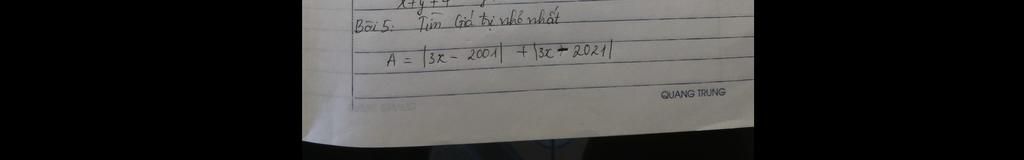 x+y+4
Bài 5: Tìm Giá trị nhỏ nhất
A = |3x - 2001| + |3x - 2021|
QUANG TRUNG